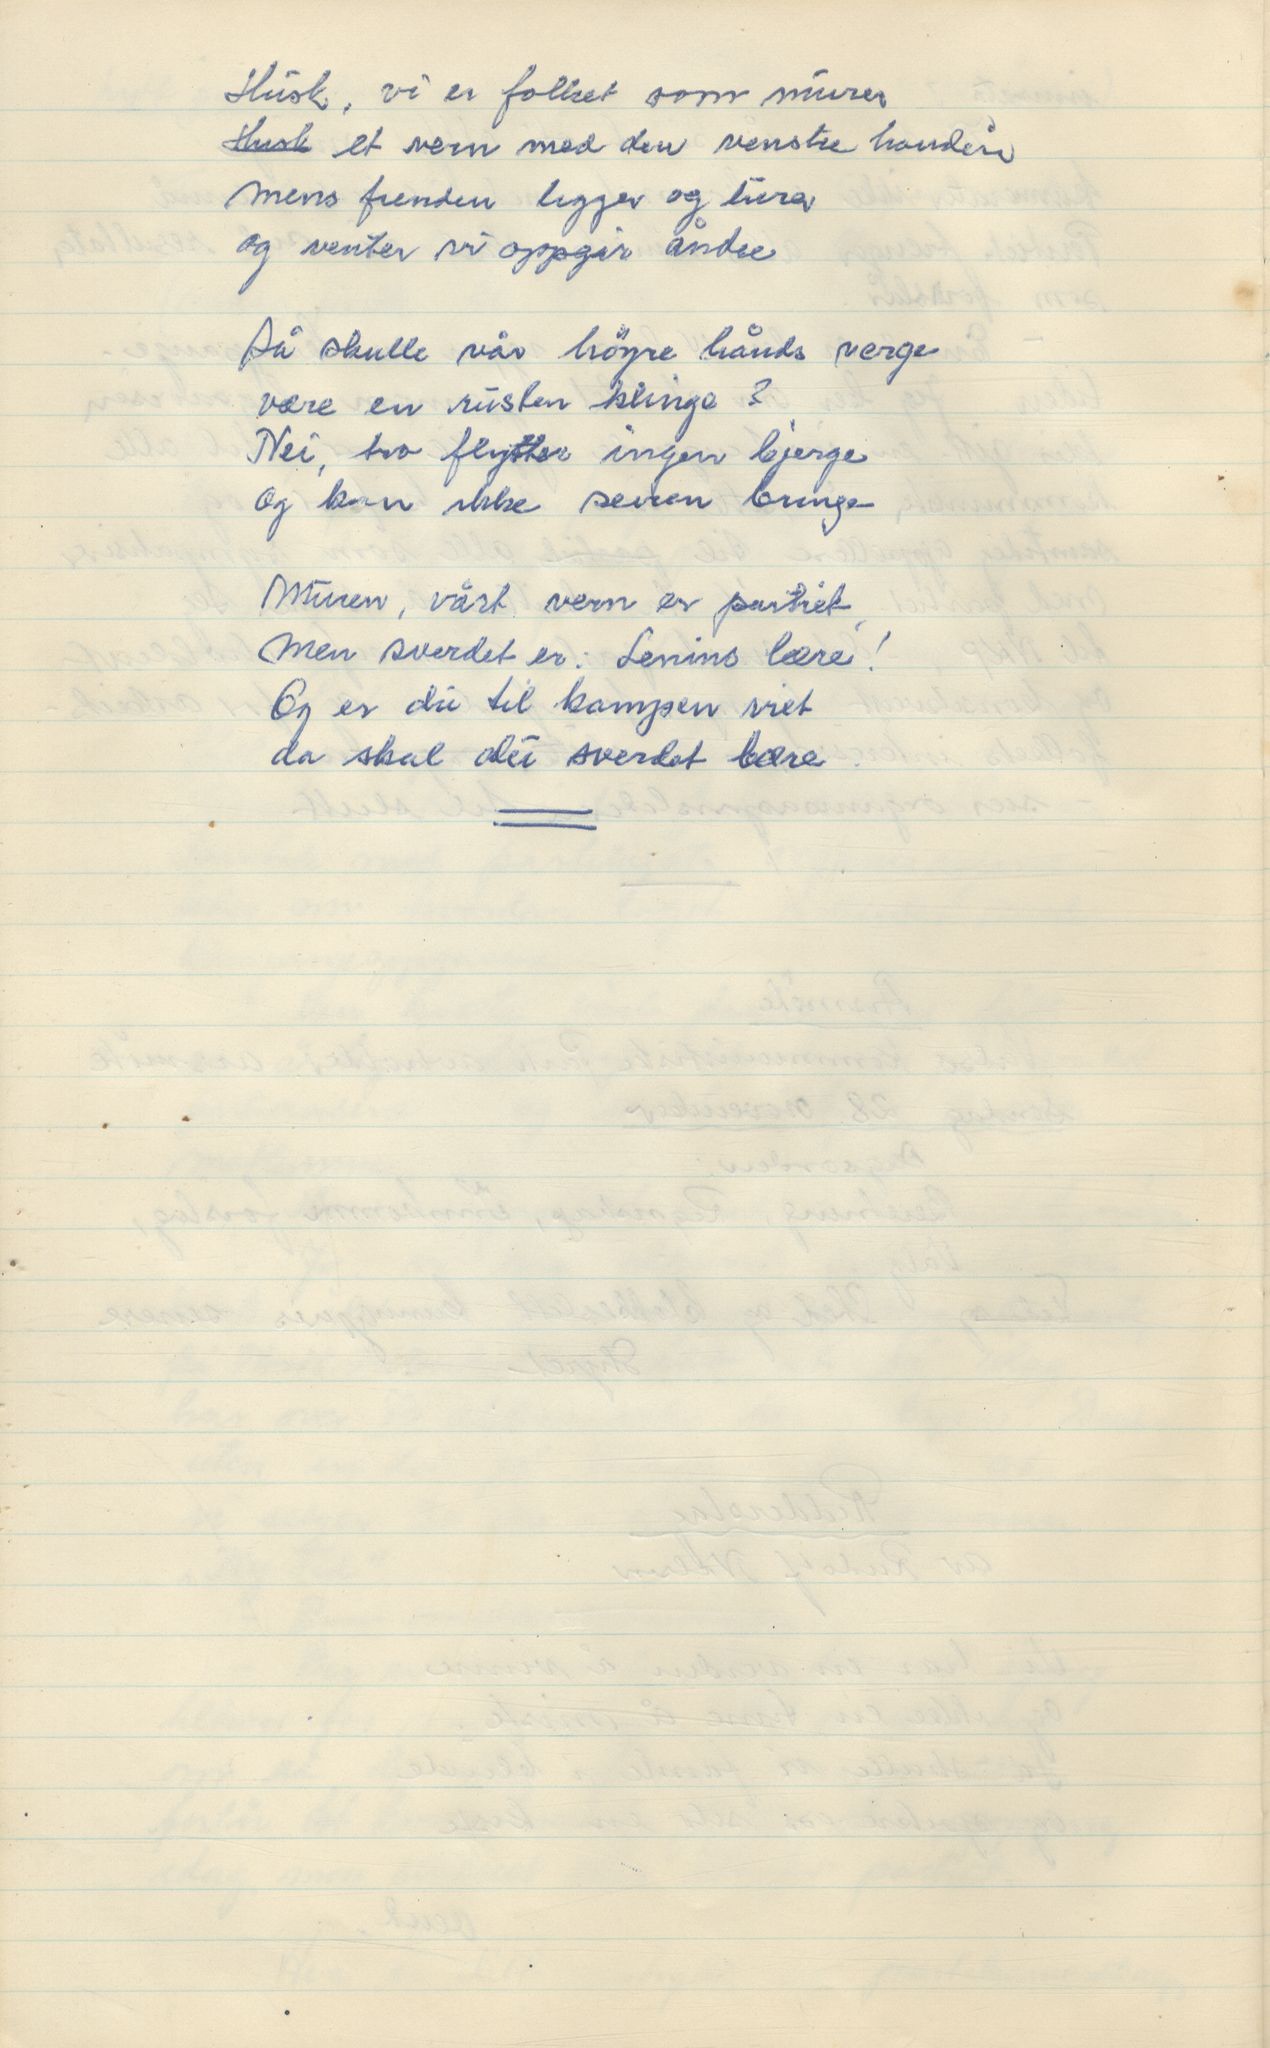 Husk, vi er folket som murer
Husk et vern med den venstre handen
Mens fienden ligger og lurer
og venter vi oppgir åndre

Så skulle vår högre hånds verge
være en rusten klinge?
Nei, tro flytter ingen bjerge
og kan ikke seiren bringe

Muren, vårt vern er partiet,
Men sverdet er: Lenins lære!
Og er du til kampen viet
da skal du sverdet bære